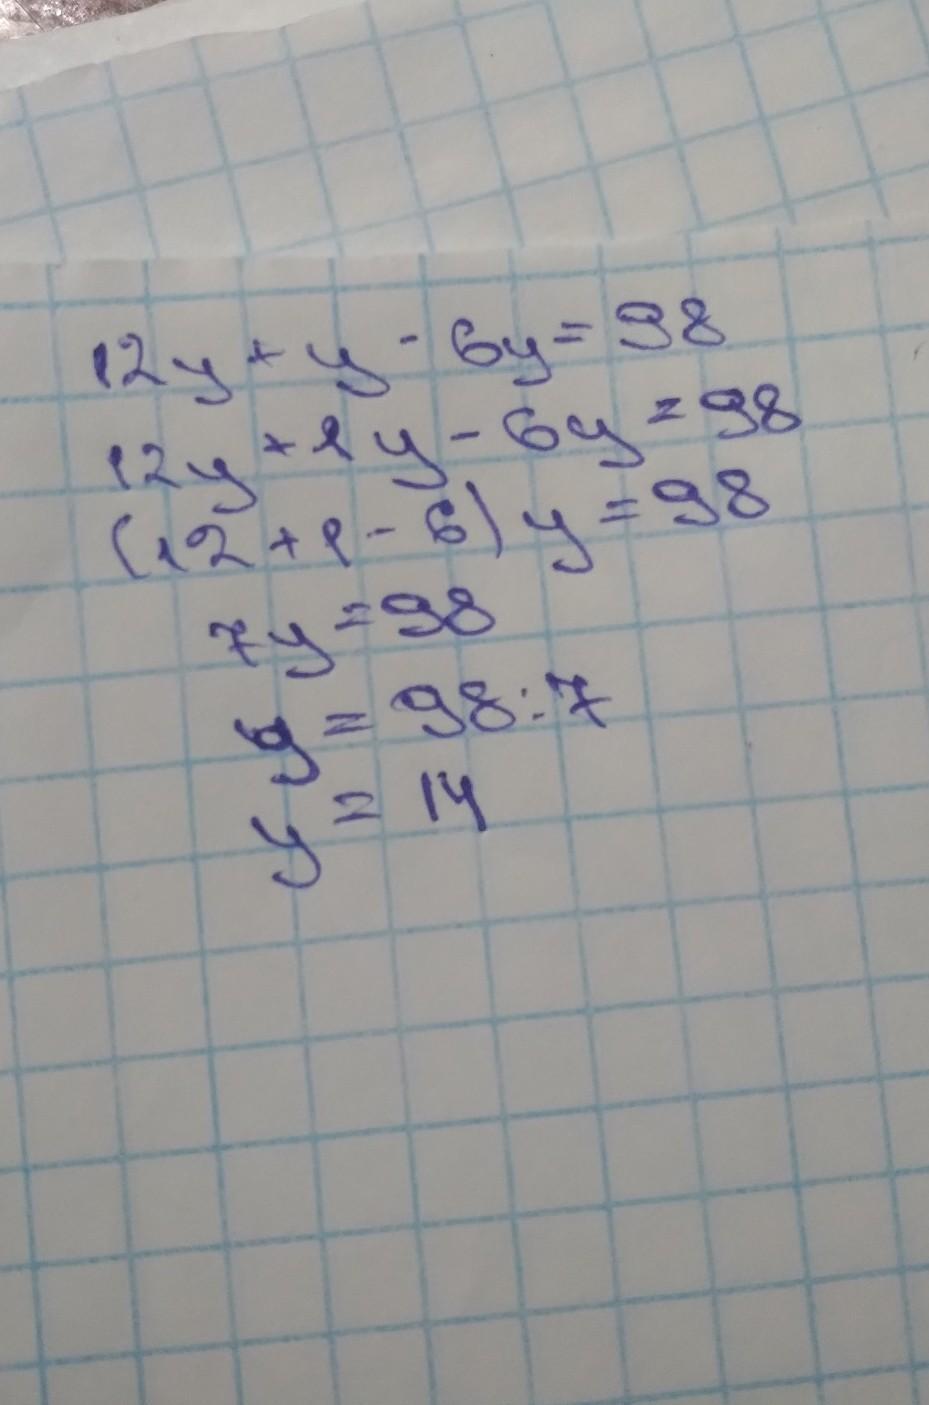 12y + y - 6y = 98
12y + 1y - 6y = 98
(12 + 1 - 6) y = 98
7y = 98
y = 98 : 7
y = 14